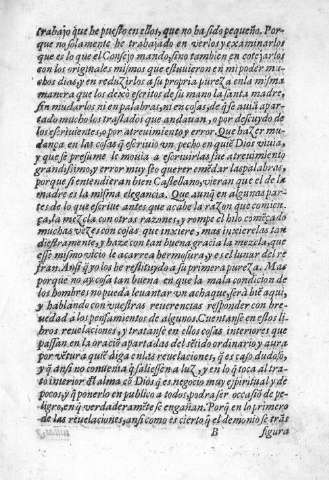 trabajo q̃ he puesto en ellos, que no ha sido pequeño. Por-
que no solamente he trabajado en verlos y examinarlos
que es lo que el Consejo mandò, sino tambien en cotejarlos
con los originales mismos que estuuieron en mi poder mu-
chos dias, y en reduzirlos a su propria pureza en la misma
manera que los dexò escritos de su mano la santa madre,
sin mudarlos ni en palabras, ni en cosas, de q̃ se auiã apar-
tado mucho los traslados que andauan, o por descuydo de
los escriuientes, o por atreuimiento y error. Que hazer mu-
dança en las cosas q̃ escriuiò vn pecho en quiẽ Dios viuia,
y que se presume le mouia a escreuirlas fue atreuimiento
grandissimo, y error muy feo querer emẽdar las palabras,
porque si entendieran bien Castellano, vieran que el de la
madre es la misma elegancia. Que aunq̃ en algunas par-
tes de lo que escriue antes que acabe la razon que comien-
ça, la mezcla con otras razones, y rompe el hilo comẽçado
muchas vezes con cosas que inxiere, mas inxierelas tan
diestramente, y haze con tan buena gracia la mezcla, que
esse mismo vicio le acarrea hermosura, y es el lunar del re
fran. Ansi q̃ yo los he restituydo a su primera pureza. Mas
porque no ay cosa tan buena en que la mala condicion de
los hombres no pueda leuantar vn achaque, serà biẽ aqui,
y hablando con vuestras reuerencias responder con bre-
uedad a los pensamentos de algunos. Cuentanse en estos li
bros reuelaciones, y tratanse en ellos cosas interiores que
passan en la oraciõ apartadas del sẽtido ordinario y aura
por vẽtura quiẽ diga en las reuelaciones, q̃ es caso dudoso,
y q̃ ansi no conuenia q̃ saliessen a luz, y en lo q̃ toca al tra-
to interior đl alma cõ Dios q̃ es negocio muy espiritual y de
pocos, y q̃ ponerlo en publico a todos, podra ser occasiõ de pe-
ligro, en q̃ verdaderamẽte se engañan. Porq̃ en lo primero
de las reuelaciones, ansi como es cierto q̃ el demonio se trãs
B figura